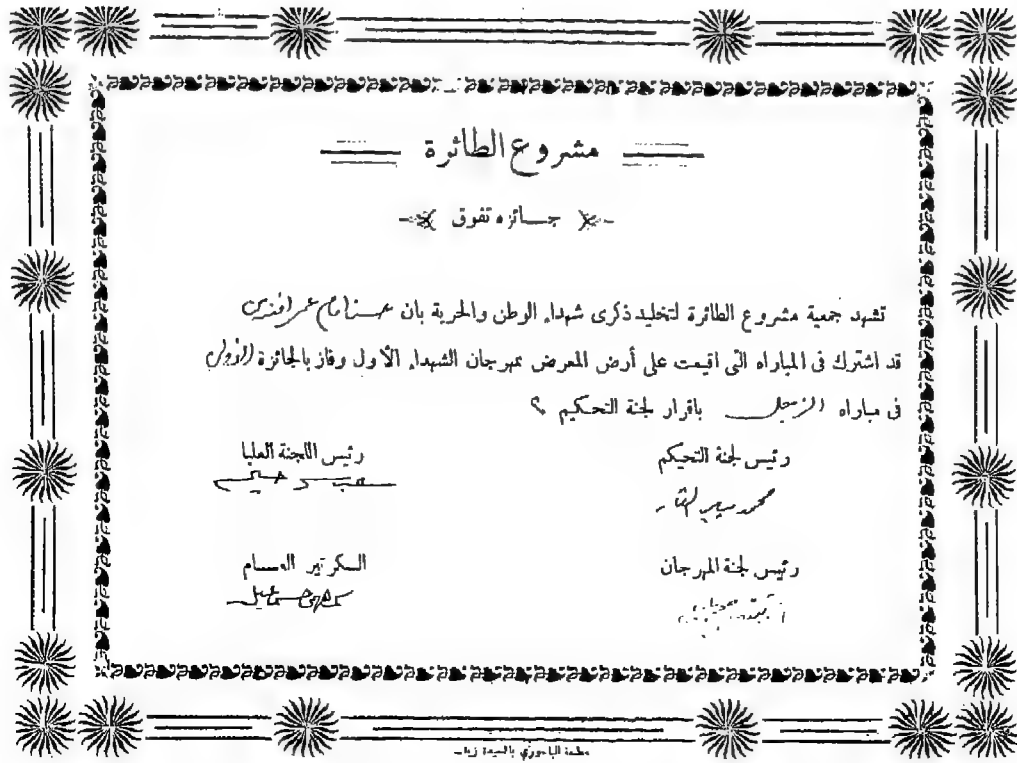 مشروع الطائرة
جائزه تفوق
تشهد جمعية مشروع الطائرة لتخليد ذكرى شهداء الوطن والحرية بان عمر افندى
قد اشترك فى المباراه التى اقيمت على أرض المعرض بمهرجان الشهداء الأول وفاز بالجائزة الأولى
فى مباراه الزجل باقرار لجنة التحكيم
رئيس لجنة التحيكم
رئيس اللجنة العليا
محمد
رئيس لجنة المهرجان
السكرتير العــام
مطبعة الباجوري بالسيدة زينب